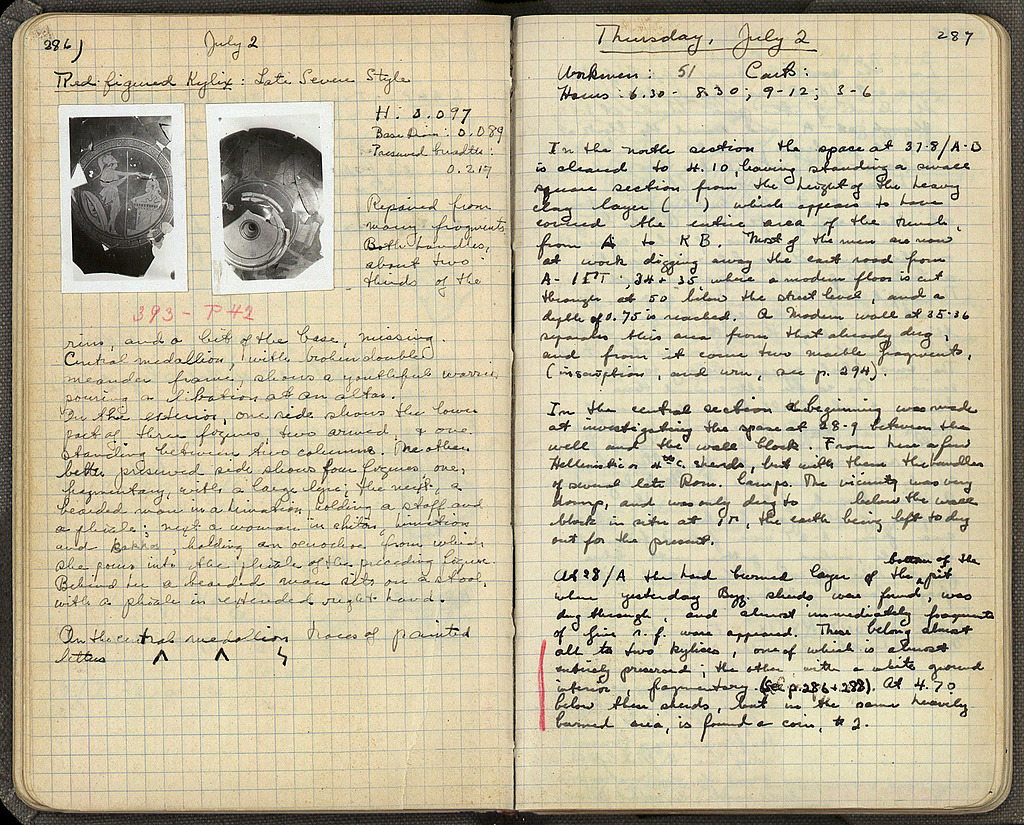 286)
July 2
Red figured Kylix: Late Severe Style
H: 0.097
Base Diam: 0.089
Preserved breadth:
0.219
Repaired from
many fragments
Both handles,
about two
thirds of the
393 - P 42
rim, and a bit of the base, missing.
Central medallion, with broken double
meander frame, shows a youthful warrior
pouring a libation at an altar.
On the exterior, one side shows the lower
part of three figures, two armed & one
standing between two columns. The other
better preserved side shows four figures one,
fragmentary, with a large lyre; the next, a
bearded man in himation, holding a staff and
a phiale; next a woman in chiton, himation
and holding an oenochoe from which
she pours into the phiale of the preceding figure
Behind her a bearded man sits on a stool,
with a phiale in extended right hand.
On the central medallion traces of painted
letters Λ Λ
Thursday, July 2
287
Workmen: 51 Carts:
Hours: 6.30 - 8.30; 9-12; 3-6
In the north section the space at 37-8/A-D
is cleared to 4.10, leaving standing a small
square section from the height of the heavy
clay layer ( ) which appears to have
covered the entire area of the trench,
from A to KB. Most of the men are now
at work digging away the east road from
A - ; 34 + 35 where a modern floor is cut
through at 50 below the street level, and a
depth of 0.75 is reached. A modern wall at 35-36
separates this area from that already dug,
and from it come two marble fragments,
(inscription, and urn, see p. 294).
In the central section a beginning was made
at investigating the space at 28-9 between the
well and the wall block. From here a few
Hellenistic or 4th c. sherds, but with them the handles
of several late Rom. lamps. The vicinity was very
damp, and was only dug to below the wall
block in situ at , the earth being left to dry
out for the present.
At 28/A the hard burned layer of the bottom of the pit
where yesterday Byz. sherds were found, was
dug through, and almost immediately fragments
of fine r.f. ware appeared. These belong almost
all to two kylixes, one of which is almost
entirely preserved; the other with a white ground
interior, fragmentary (See p. 286 + 288). At 4.70
below these sherds, but in the same heavily
burned area, is found a coin, # 2.